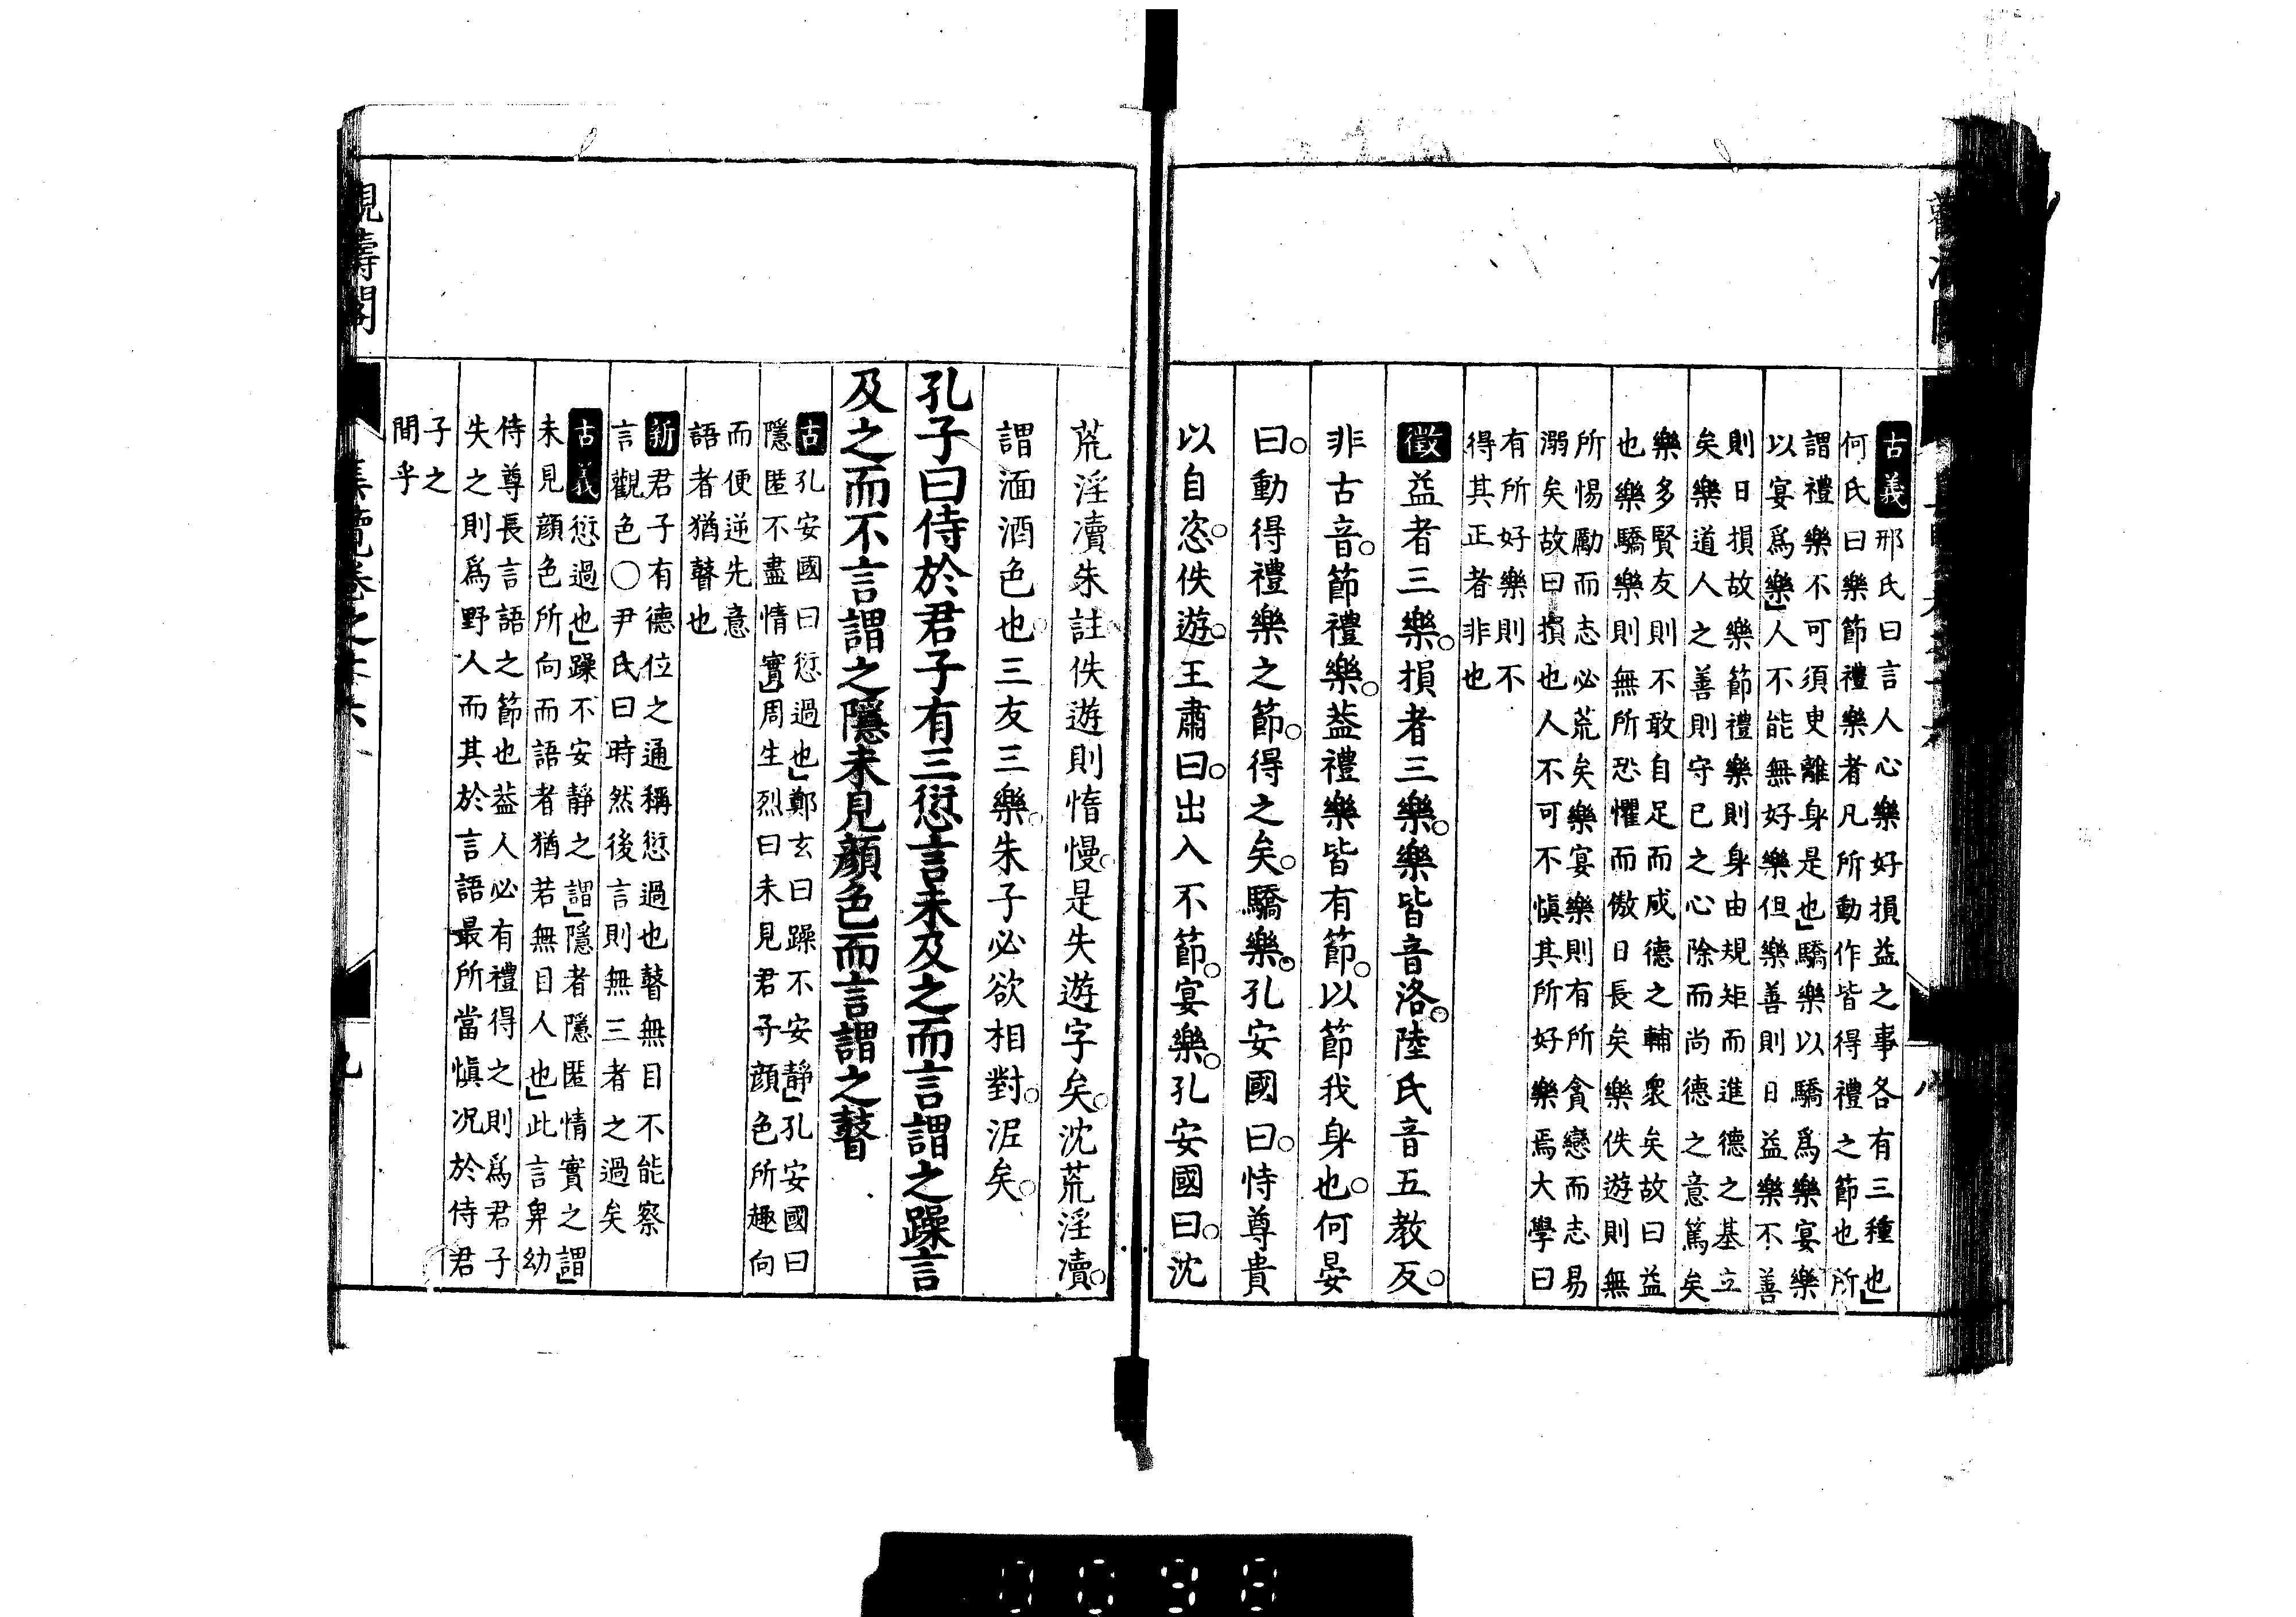 古義邢氏曰言人心樂好損益之事各有三種也
何氏曰樂節禮樂者凡所動作皆得禮之節也所
謂禮樂不可須臾離身是也驕樂以驕爲樂宴樂
以宴爲樂人不能無好樂但樂善則日益樂不善
則日損故樂節禮樂則身由規矩而進德之基立
矣樂道人之善則守己之心除而尚德之意篤矣
樂多賢友則不敢自足而成德之輔衆矣故曰益
也樂驕樂則無所恐懼而傲日長矣樂佚遊則無
所惕勵而志必荒矣樂宴樂則有所貪戀而志易
溺矣故曰損也人不可不愼其所好樂焉大學曰
有所好樂則不
得其正者非也
徵益者三樂損者三樂樂皆音洛陸氏音五教反
非古音節禮樂益禮樂皆有節以節我身也何晏
曰動得禮樂之節得之矣驕樂孔安國曰恃尊貴
以自恣佚遊王肅曰出入不節宴樂孔安國曰沈
荒淫瀆朱註佚遊則惰慢是失遊字矣沈荒淫瀆
謂湎酒色也三友三樂朱子必欲相對泥矣
孔子曰侍於君子有三愆言未及之而言謂之躁言
及之而不言謂之隱未見顔色而言謂之瞽
古孔安國曰愆過也鄭玄曰躁不安靜孔安國曰
隱匿不盡情實周生烈曰未見君子顔色所趣向
而便逆先意
語者猶瞽也
新君子有德位之通稱愆過也瞽無目不能察
言觀色○尹氏曰時然後言則無三者之過矣
古義愆過也躁不安靜之謂隱者隱匿情實之謂
未見顔色所向而語者猶若無目人也此言卑幼
侍尊長言語之節也葢人必有禮得之則爲君子
失之則爲野人而其於言語最所當愼况於侍君
子之
間乎
集覽卷之十六
九